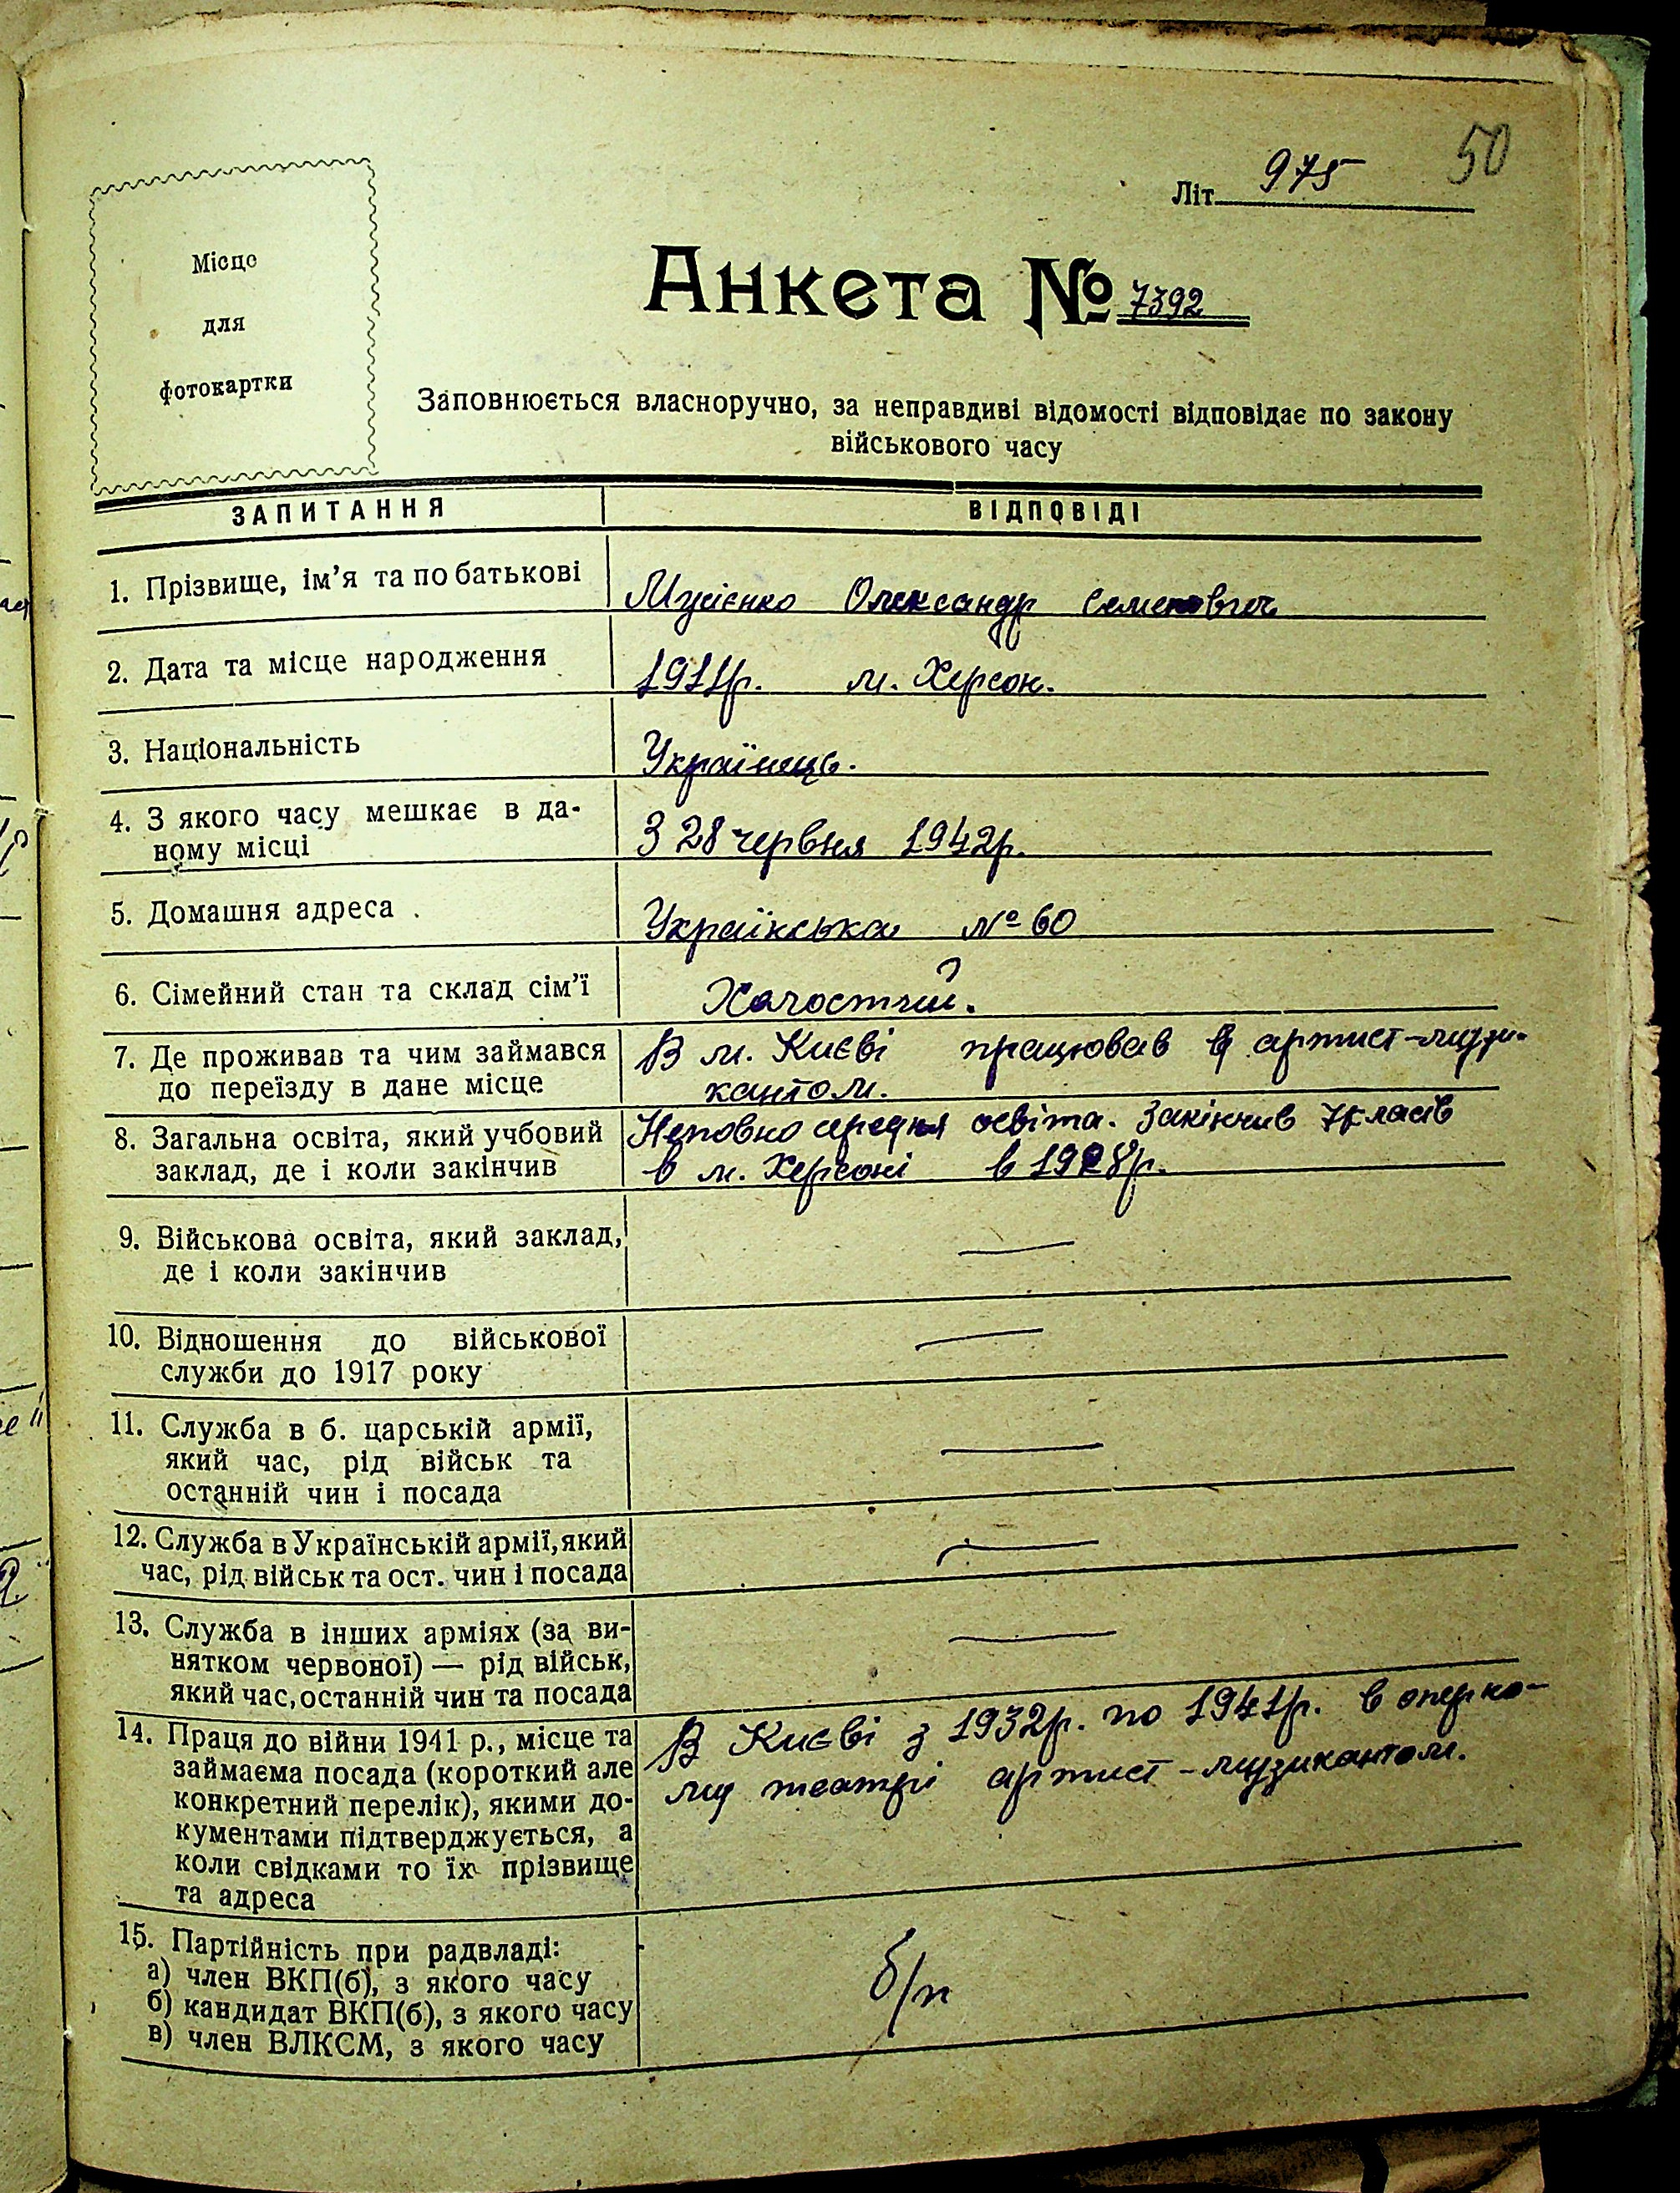 50
Літ. 975
Місце
для
фотокартки
Анкета № 7392
Заповнюється власноручно, за неправдиві відомості відповідає по закону
військового часу
ЗАПИТАННЯ ВІДПОВІДІ
1. Прізвище, ім’я та по батькові Мусієнко Олександр Семенович
2. Дата та місце народження 1911р. м. Херсон.
3. Національність Українець.
4. З якого часу мешкає в да-
ному місці З 28 червня 1942р.
5. Домашня адреса Українська № 60
6. Сімейний стан та склад сім’ї Холостий.
7. Де проживав та чим займався В м. Києві працював артист-музи-
до переїзду в дане місце кантом.
8. Загальна освіта, який учбовий Неповно середня освіта. Закінчив 7 класів
заклад, де і коли закінчив в м. Херсоні в 1928р.
9. Військова освіта, який заклад, —
де і коли закінчив
10. Відношення до військової —
служби до 1917 року
11. Служба в б. царській армії, —
який час, рід військ та
останній чин і посада
12. Служба в Українській армії, який —
час, рід військ та ост. чин і посада
13. Служба в інших арміях (за ви- —
нятком червоної) — рід військ,
який час, останній чин та посада
14. Праця до війни 1941 р., місце та В Києві з 1932р. по 1941р. в оперно-
займаєма посада (короткий але му театрі артист-музикантом.
конкретний перелік), якими до-
кументами підтверджується, а
коли свідками то їх прізвище
та адреса
15. Партійність при радвладі: б/п
а) член ВКП(б), з якого часу
б) кандидат ВКП(б), з якого часу
в) член ВЛКСМ, з якого часу